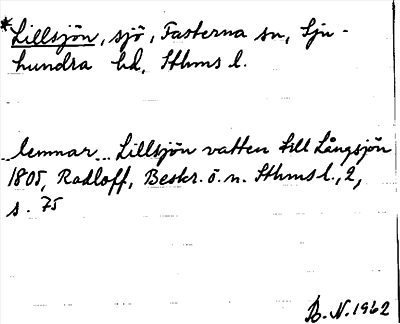 *Lillsjön, sjö, Fasterna sn, Sju-
hundra hd, Sthms l.
lemnar Lillsjön vatten till Långsjön
1805, Radloff, Beskr. ö. n. Sthms l., 2,
s. 75
B.N. 1962